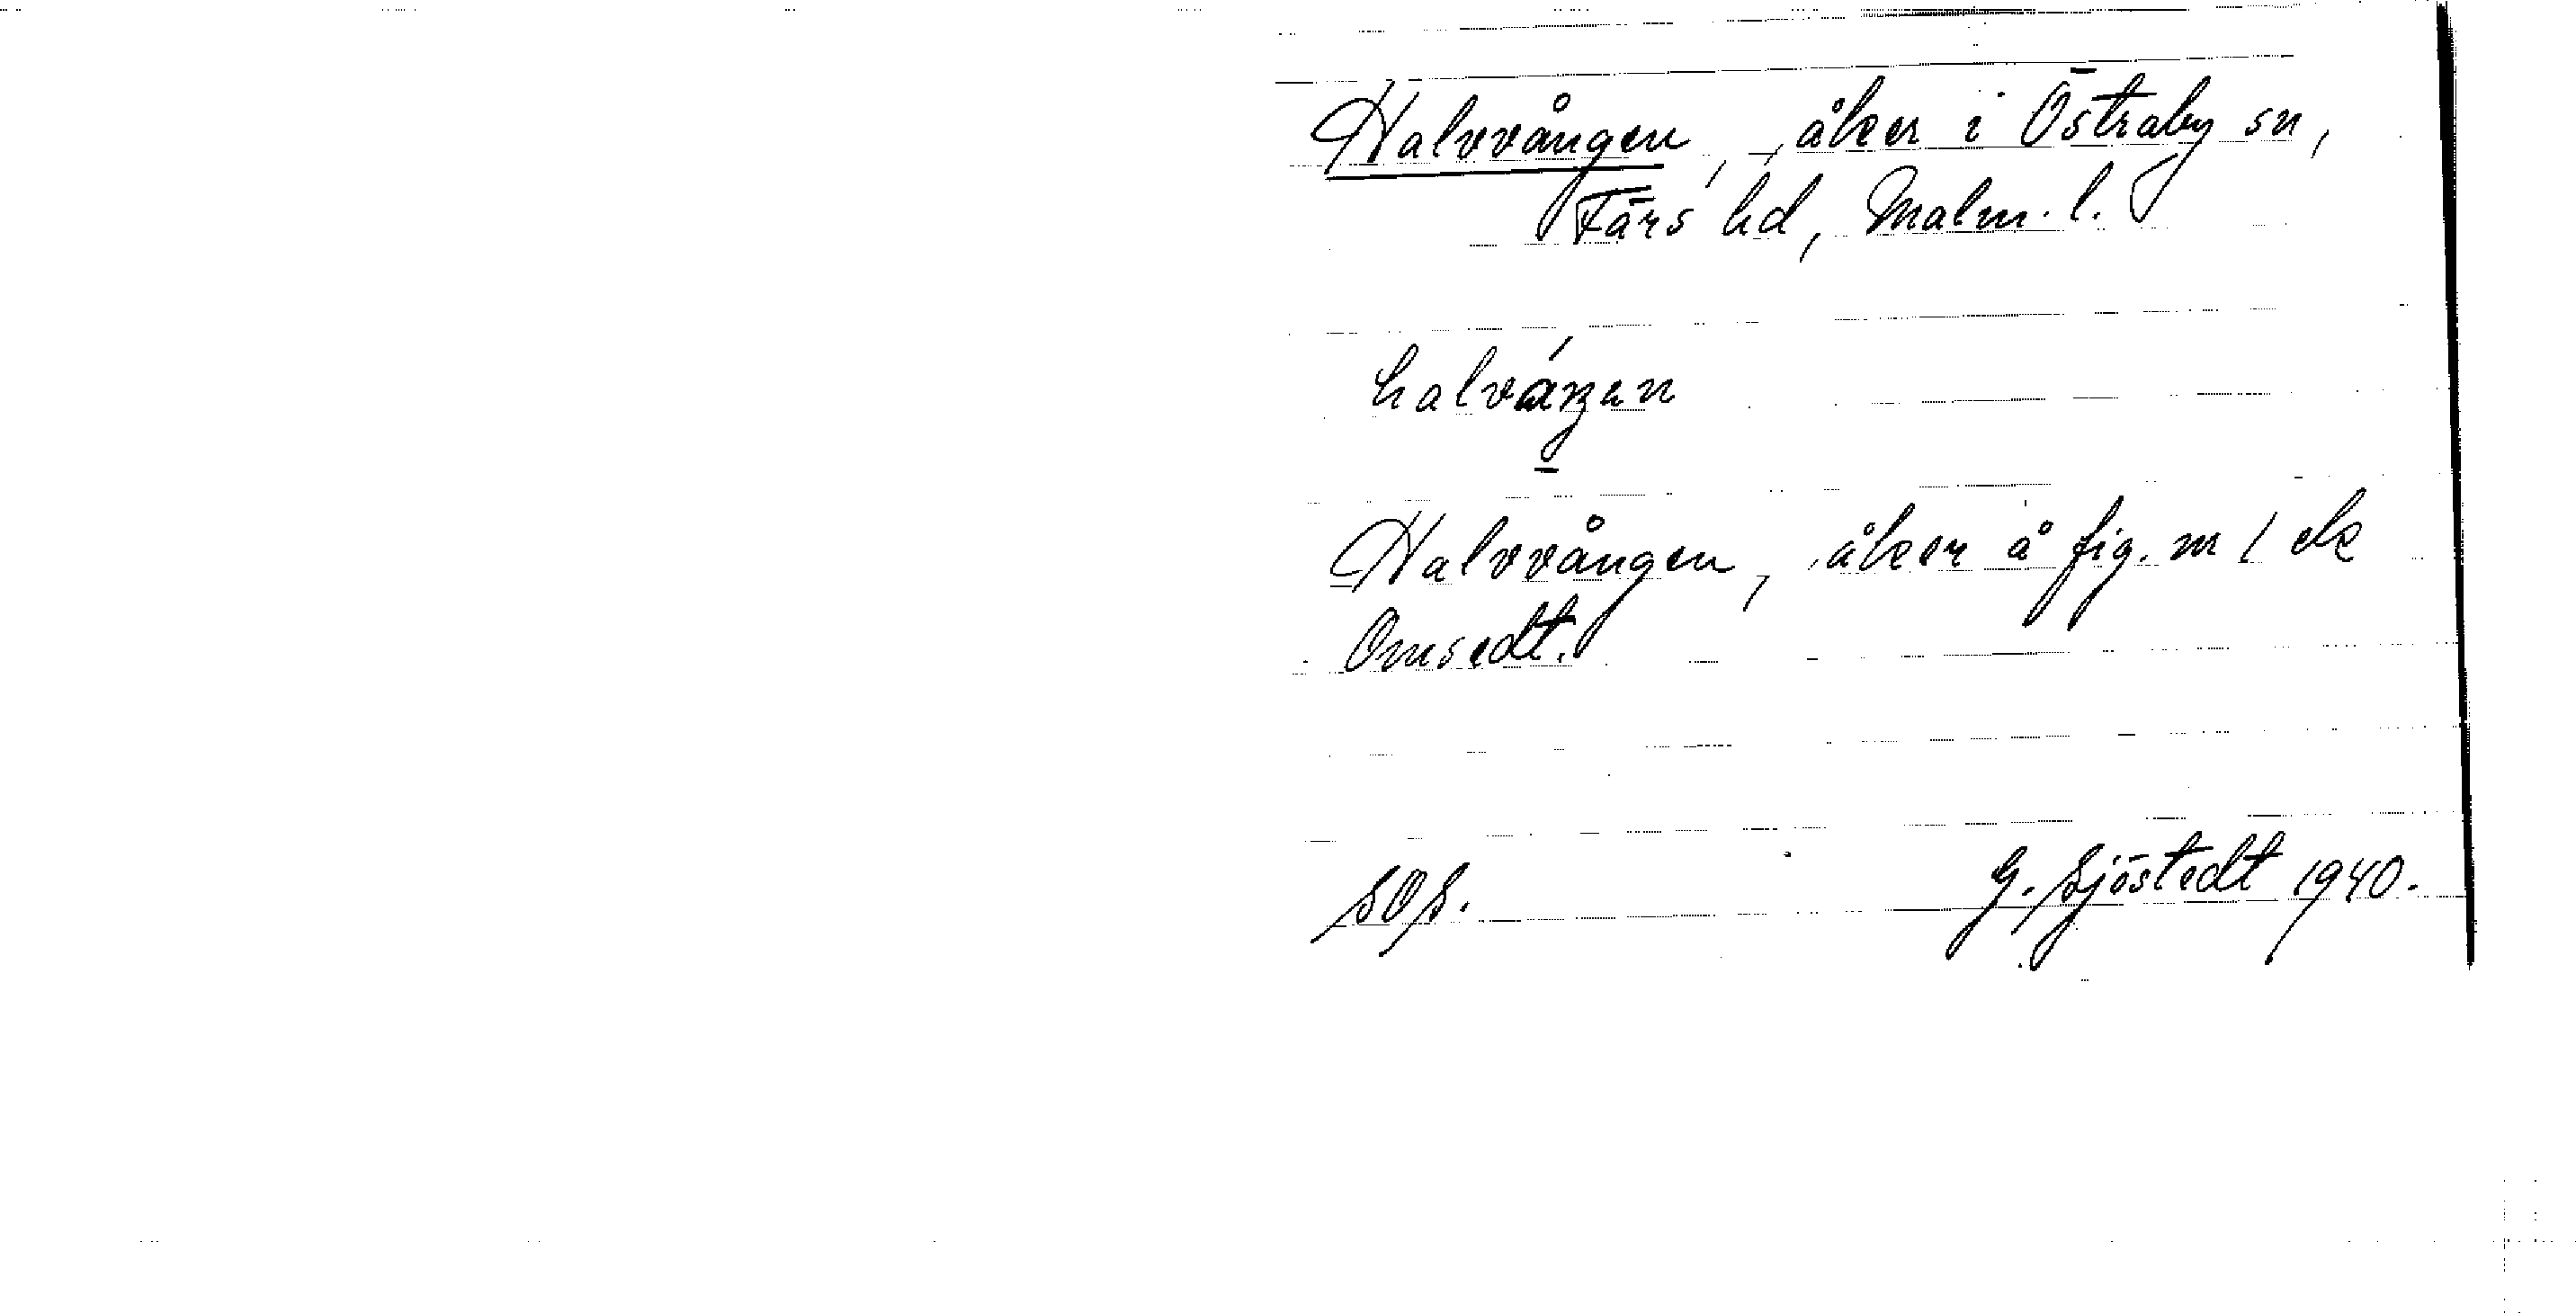 Halvvången, åker i Östraby sn,
Färs hd, Malm. l.
halváŋen
Halvvången, åker å fig. nr 1 ek
Omsedt.
SOS.
G. Sjöstedt 1940.